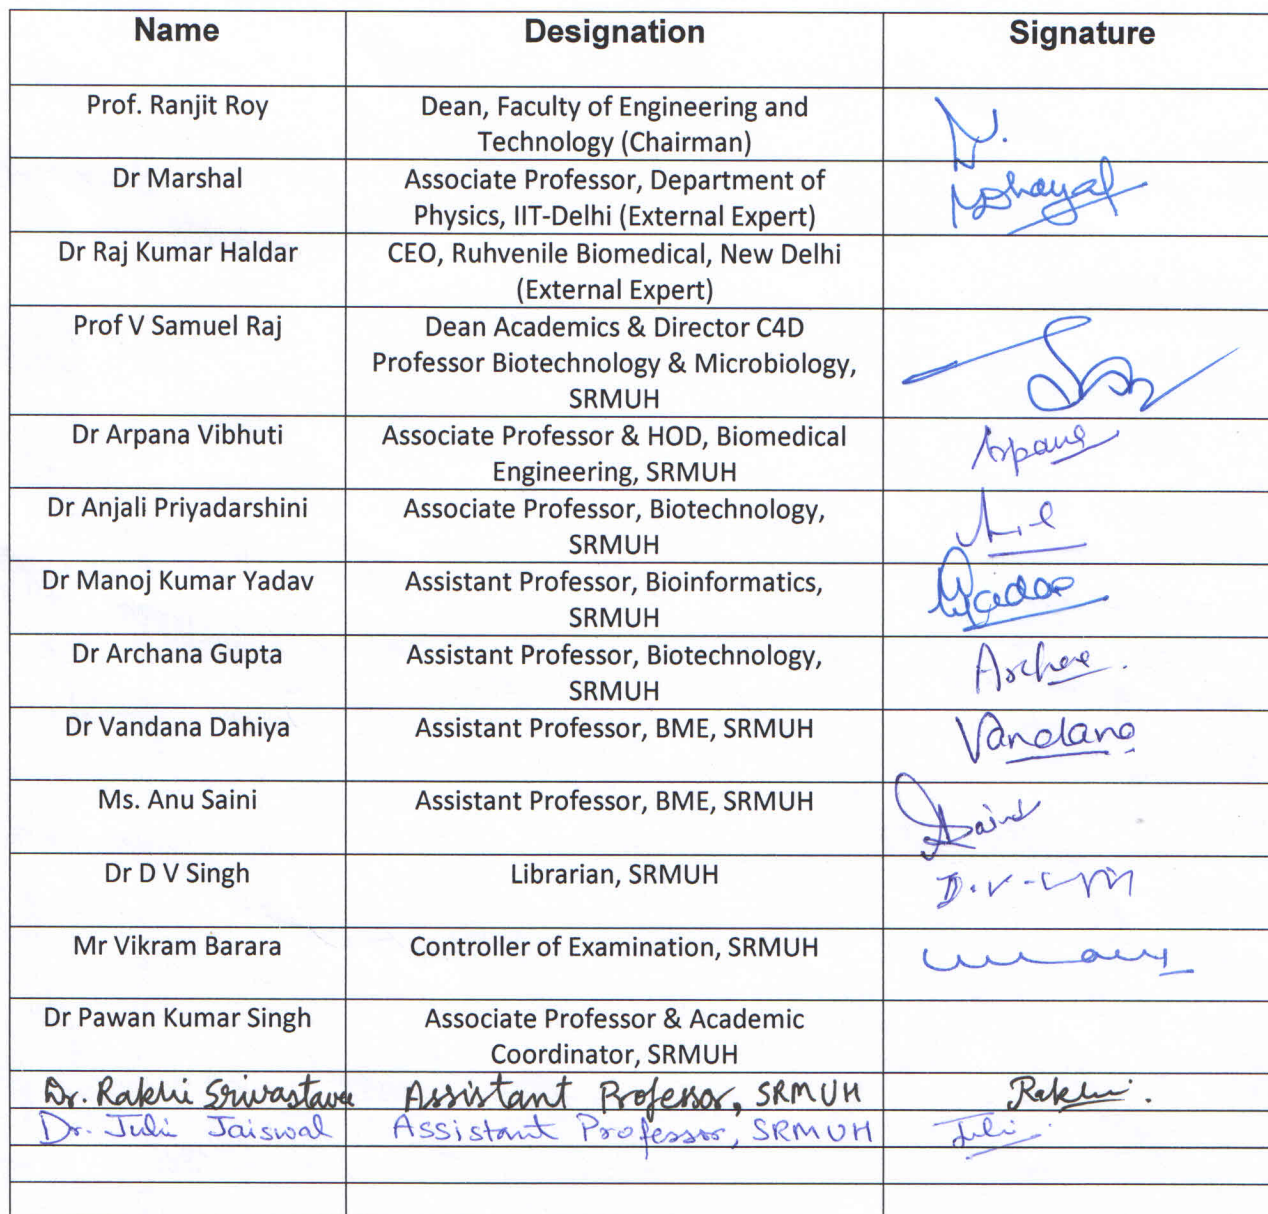 Name Designation Signature
Prof. Ranjit Roy Dean, Faculty of Engineering and
Technology (Chairman)
Dr Marshal Associate Professor, Department of
Physics, IIT-Delhi (External Expert)
Dr Raj Kumar Haldar CEO, Ruhvenile Biomedical, New Delhi
(External Expert)
Prof V Samuel Raj Dean Academics & Director C4D
Professor Biotechnology & Microbiology,
SRMUH
Dr Arpana Vibhuti Associate Professor & HOD, Biomedical
Engineering, SRMUH
Dr Anjali Priyadarshini Associate Professor, Biotechnology,
SRMUH
Dr Manoj Kumar Yadav Assistant Professor, Bioinformatics,
SRMUH
Dr Archana Gupta Assistant Professor, Biotechnology,
SRMUH
Dr Vandana Dahiya Assistant Professor, BME, SRMUH Vandana
Ms. Anu Saini Assistant Professor, BME, SRMUH
Dr D V Singh Librarian, SRMUH
Mr Vikram Barara Controller of Examination, SRMUH
Dr Pawan Kumar Singh Associate Professor & Academic
Coordinator, SRMUH
Dr. Rakhi Srivastava Assistant Professor, SRMUH Rakhi.
Dr. Juli Jaiswal Assistant Professor, SRMUH Juli